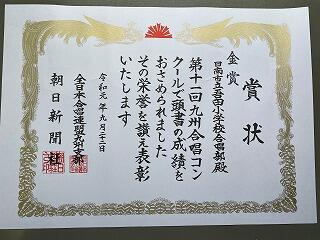 賞状
金賞
日南市立吾田小学校合唱部殿
第十一回九州合唱コン
クールで頭書の成績を
おさめられました
その栄誉を讃え表彰
いたします
令和元年九月二十二日
全日本合唱連盟九州支部
朝日新聞社